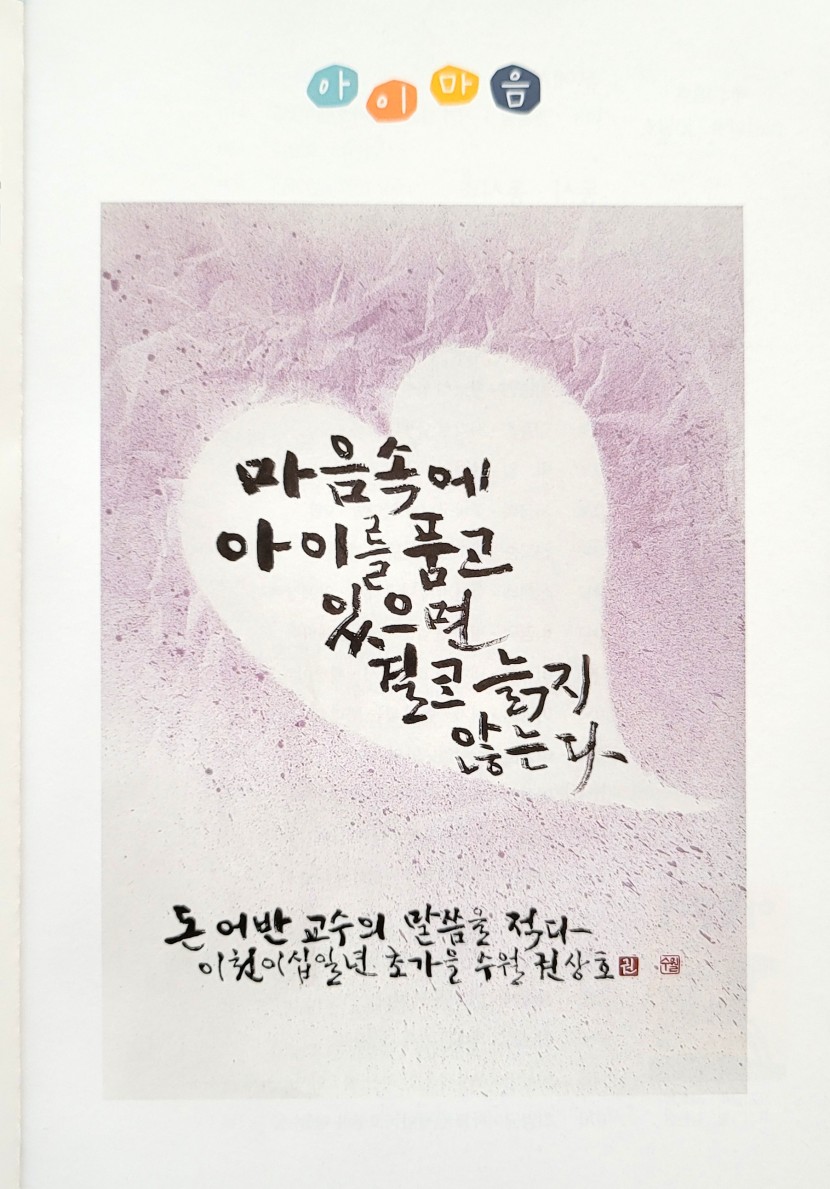 아이마음
마음속에
아이를 품고
있으면
결코 늙지
않는다
돈 어반 교수의 말씀을 적다
이천이십일년 초가을 수월 권상호 권 수월